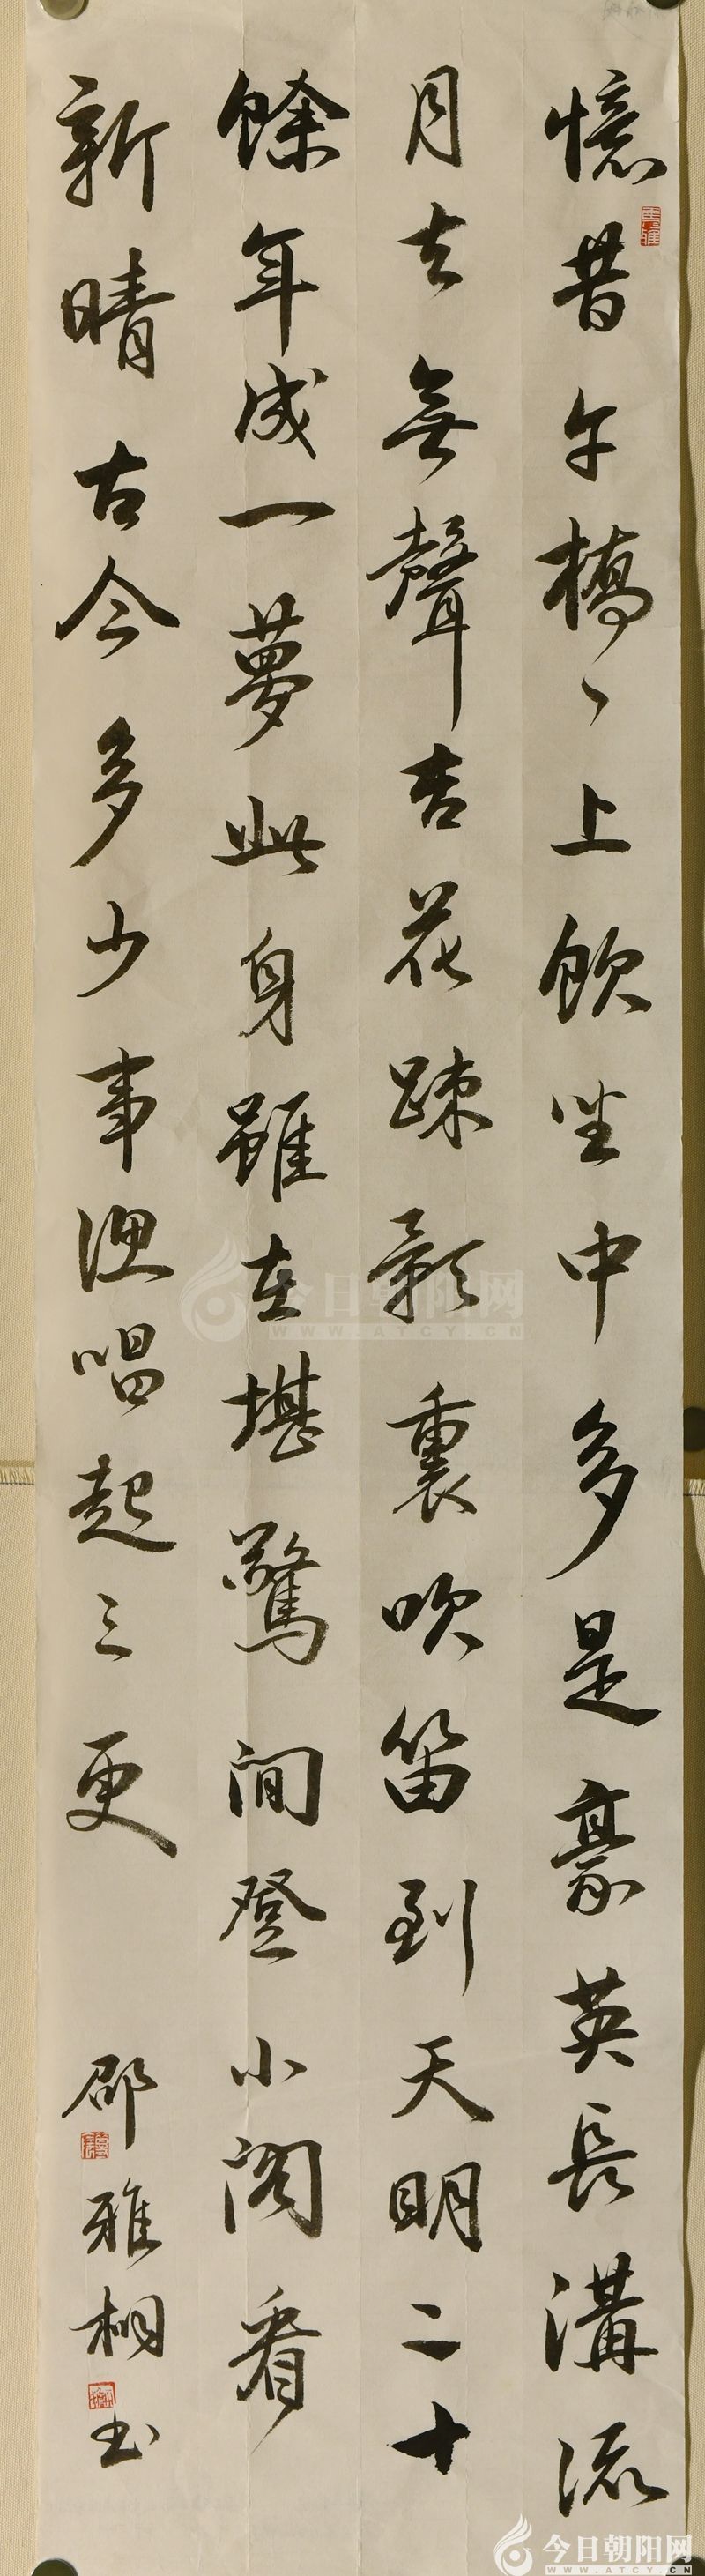 憶昔午橋丶上飲坐中多是豪英長溝流
月去無聲杏花踈影裏吹笛到天明二十
餘年成一夢此身雖在堪驚間登小閣看
新晴古今多少事漁唱起三更
邵雅書
今日朝阳网
WWW.ATCY.CN
今日朝阳网
WWW.ATCY.CN